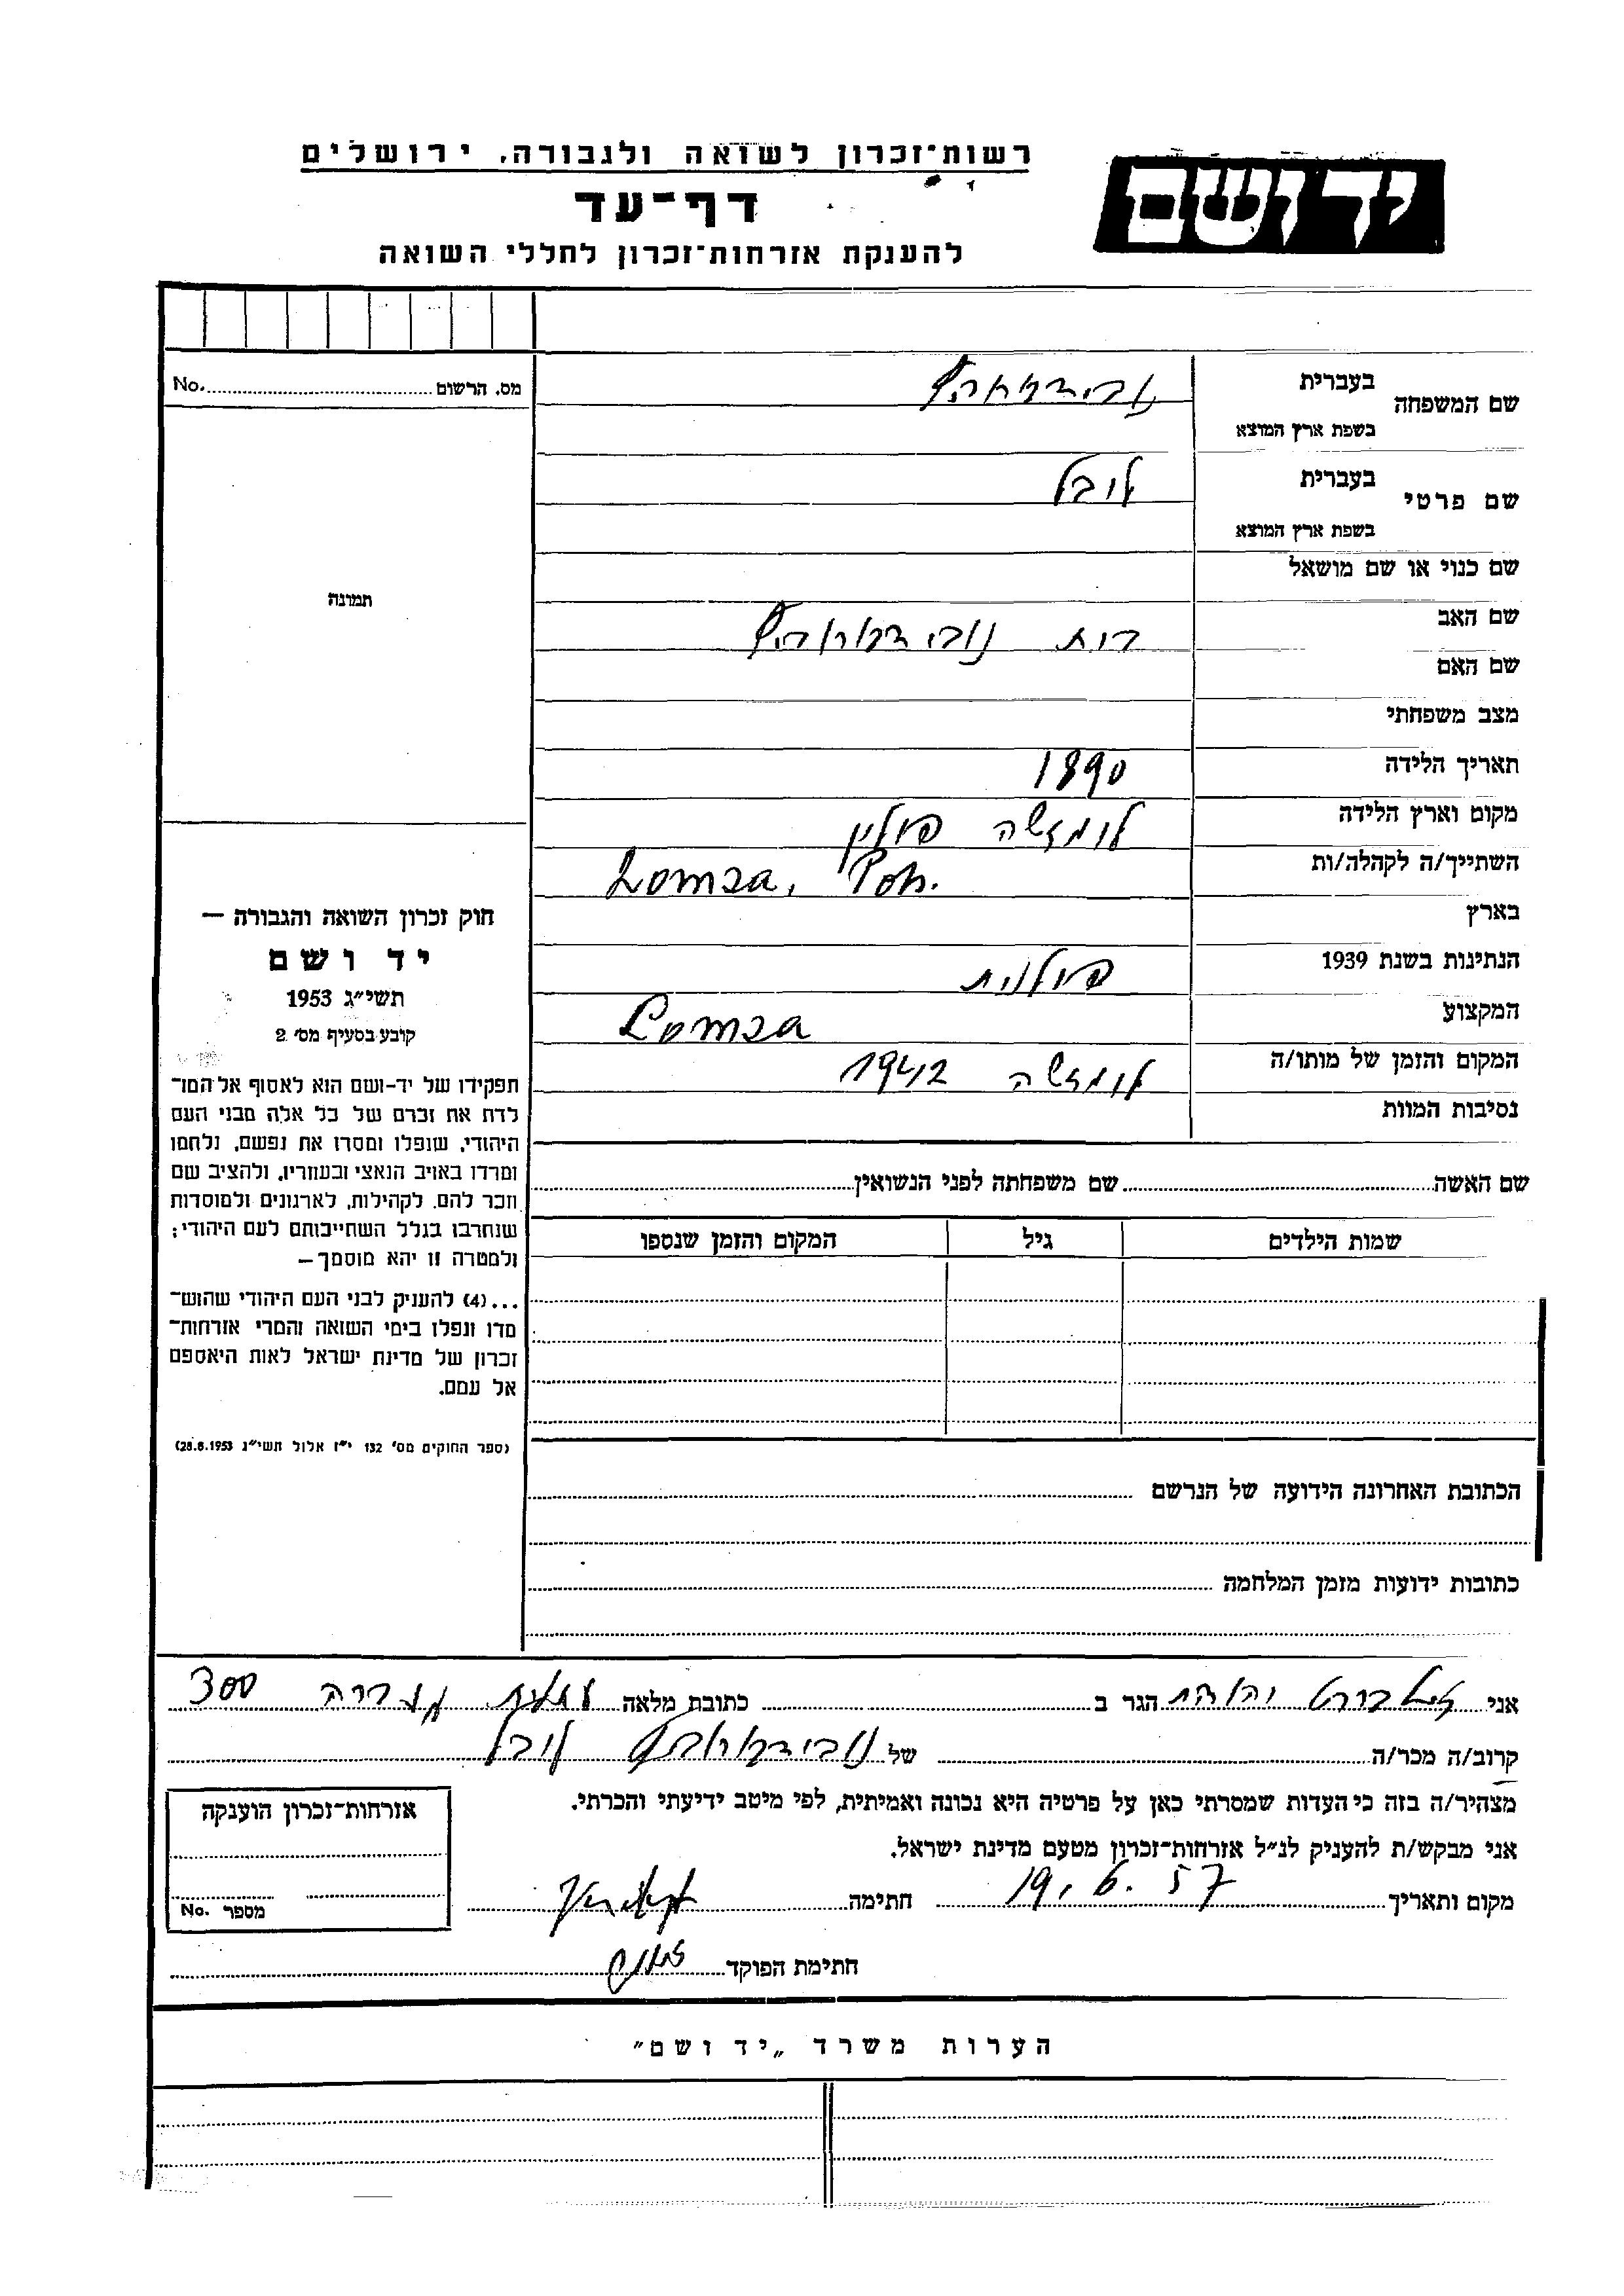 רשות־זכרון לשואה ולגבורה, ירושלים
יד ושם
דף־עד
להענקת אזרחות־זכרון לחללי השואה
מס. הרשום No.
שם המשפחה
בעברית
בשפת ארץ המוצא
שם פרטי
בעברית לובל
בשפת ארץ המוצא
שם כנוי או שם מושאל
שם האב
שם האם
מצב משפחתי
תאריך הלידה 1890
מקום וארץ הלידה לומזשה פולין
השתייך/ה לקהלה/ות Lomza,
בארץ
הנתינות בשנת 1939 פולנית
המקצוע Lomza
המקום והזמן של מותו/ה לומזשה 1942
נסיבות המוות
תמונה
חוק זכרון השואה והגבורה —
יד ושם
תשי״ג 1953
קובע בסעיף מס׳ 2
תפקידו של יד־ושם הוא לאסוף אל המו־
לדת את זכרם של כל אלה מבני העם
היהודי, שנפלו ומסרו את נפשם, נלחמו
ומרדו באויב הנאצי ובעוזריו, ולהציב שם
וזכר להם, לקהילות, לארגונים ולמוסדות
שנחרבו בגלל השתייכותם לעם היהודי;
ולמטרה זו יהא מוסמך—
...(4) להעניק לבני העם היהודי שהוש־
מדו ונפלו בימי השואה והמרי אזרחות־
זכרון של מדינת ישראל לאות היאספם
אל עמם.
(ספר החוקים מס׳ 132 י״ז אלול תשי״ג 28.8.1953)
שם האשה שם משפחתה לפני הנשואין
שמות הילדים גיל המקום והזמן שנספו
הכתובת האחרונה הידועה של הנרשם
כתובות ידועות מזמן המלחמה
אני הגר ב כתובת מלאה 300
קרוב/ה מכר/ה של לובל
מצהיר/ה בזה כי העדות שמסרתי כאן על פרטיה היא נכונה ואמיתית, לפי מיטב ידיעתי והכרתי.
אני מבקש/ת להעניק לנ״ל אזרחות־זכרון מטעם מדינת ישראל.
מקום ותאריך 19.6.57 חתימה
חתימת הפוקד
אזרחות־זכרון הוענקה
מספר No.
הערות משרד „יד ושם״